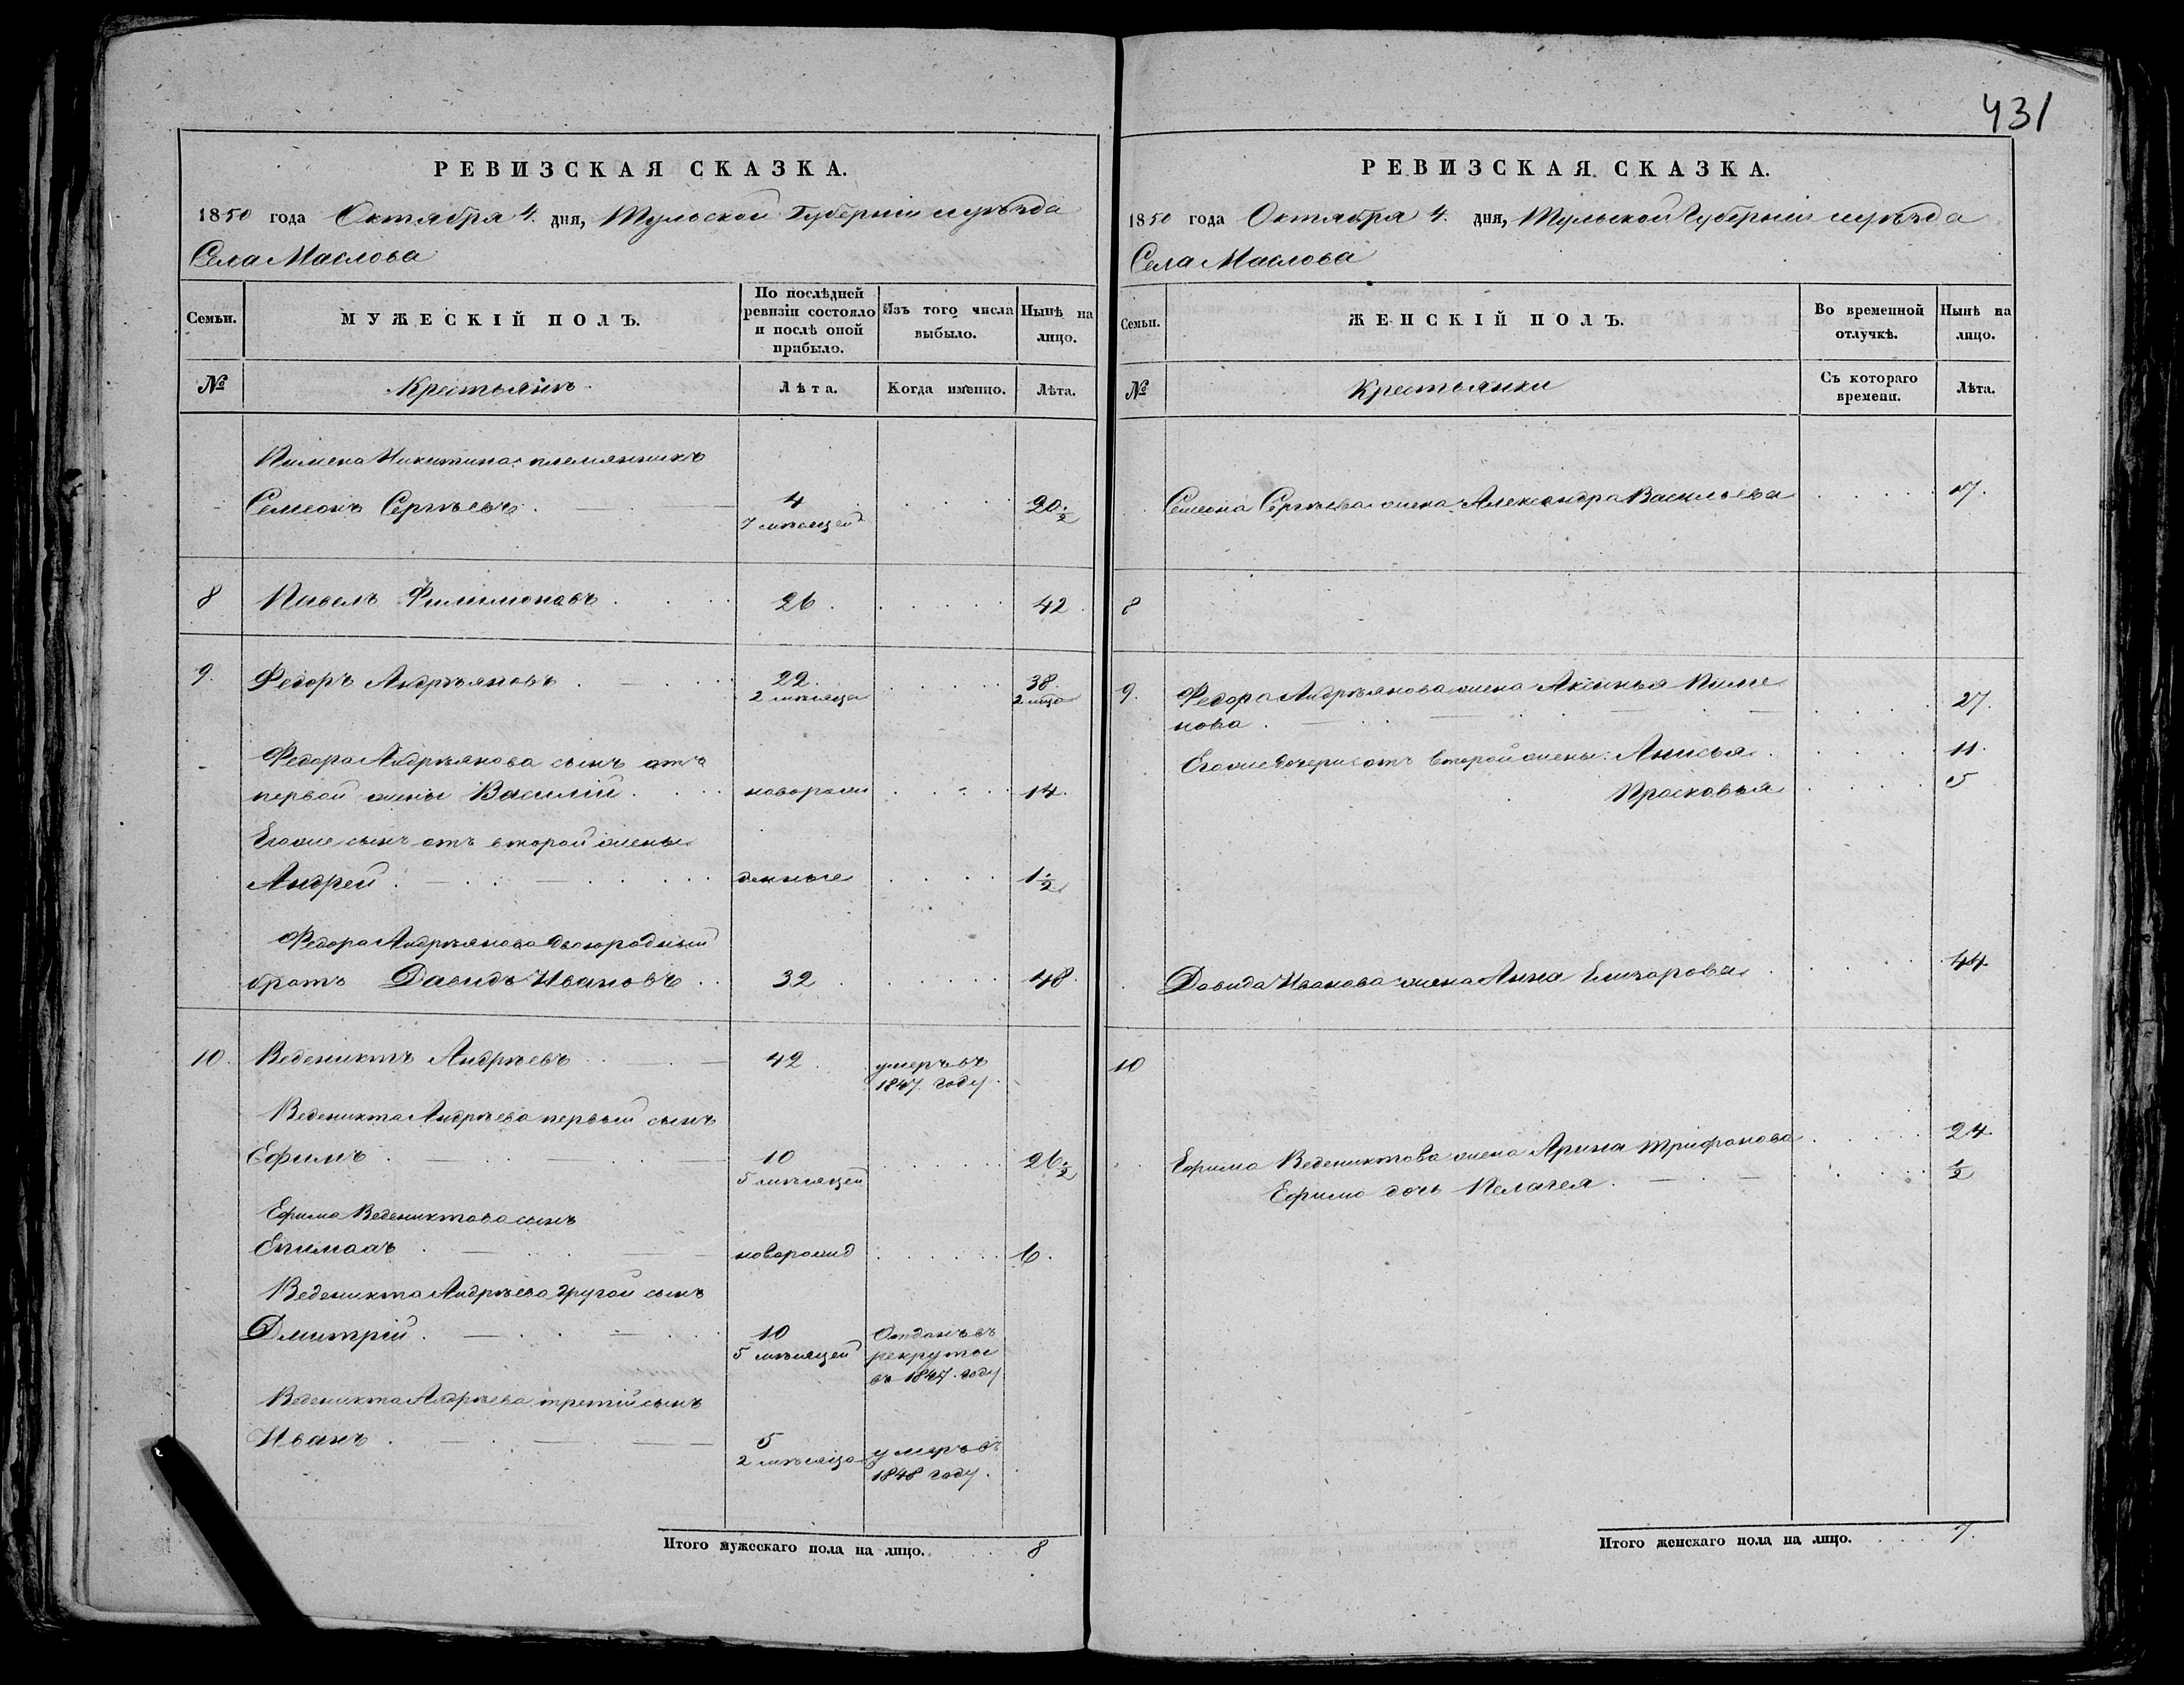 431
РЕВИЗСКАЯ СКАЗКА.
1850 года Октября 4. дня, Тульской Губерніи и уѣзда
Села Маслова
Семьи.
МУЖЕСКІЙ ПОЛЪ.
По послѣдней
ревизіи состояло
и послѣ оной
прибыло.
Изъ того числа
выбыло.
Нынѣ на
лицо.
№
Крестьянъ
Лѣта.
Когда именно.
Лѣта.
Пимена Никитина племянникъ
Семеонъ Сергѣевъ 4 20 1/2
7 мѣсяцей
8 Павелъ Филимоновъ 26 42
9. Федоръ Андрѣяновъ 22. 38.
2 мѣсяца 2 мѣца
Федора Андрѣянова сынъ отъ
первой жены Василій новорож 14.
Егоже сынъ отъ второй жены
Андрей денные 1 1/2
Федора Андрѣянова двоюродный
братъ Давидъ Ивановъ 32 48.
10. Веденихтъ Андрѣевъ 42 умеръ въ
1847 году
Веденихта Андрѣева первый сынъ
Ефимъ 10 26 1/2
5 мѣсяцей
Ефима Веденихтова сынъ
Епимахъ новорожд 6.
Веденихта Андрѣева другой сынъ
Дмитрій 10 Отданъ въ
5 мѣсяцей рекруты
въ 1847 году
Веденихта Андрѣева третій сынъ
Иванъ 5 умеръ въ
2 мѣсяца 1848 году.
Итого мужескаго пола на лицо. 8
РЕВИЗСКАЯ СКАЗКА.
1850 года Октября 4. дня, Тульской Губерніи и уѣзда
Села Маслова
Семьи.
ЖЕНСКІЙ ПОЛЪ.
Во временной
отлучкѣ.
Нынѣ на
лицо.
№
Крестьянки
Съ котораго
времени.
Лѣта.
Семеона Сергѣева жена Александра Васильева 17.
8
9. Федора Андрѣянова жена Аксинья Пиме
нова 27.
Егоже дочери отъ второй жены: Анисья 11.
Прасковья 5
Давида Иванова жена Анна Елизарова 44
10
Ефима Веденихтова жена Арина Трифонова 24
Ефима дочь Пелагея 1/2
Итого женскаго пола на лицо. 7.